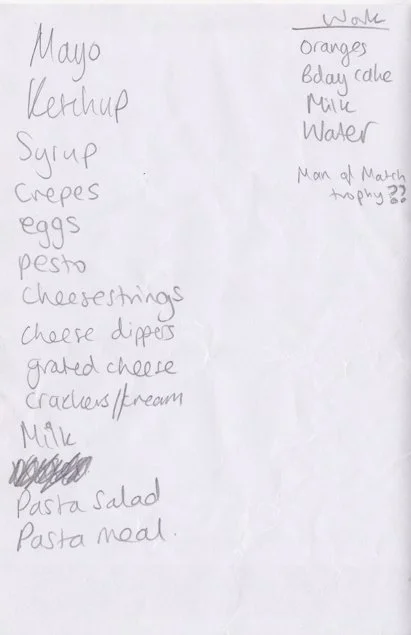 Mayo
Ketchup
Syrup
Crepes
eggs
pesto
Cheesestrings
cheese dippers
grated cheese
Crackers//cream
Milk
Pasta Salad
Pasta meal.
Work
Oranges
Bday cake
Milk
Water
Man of Match
trophy??